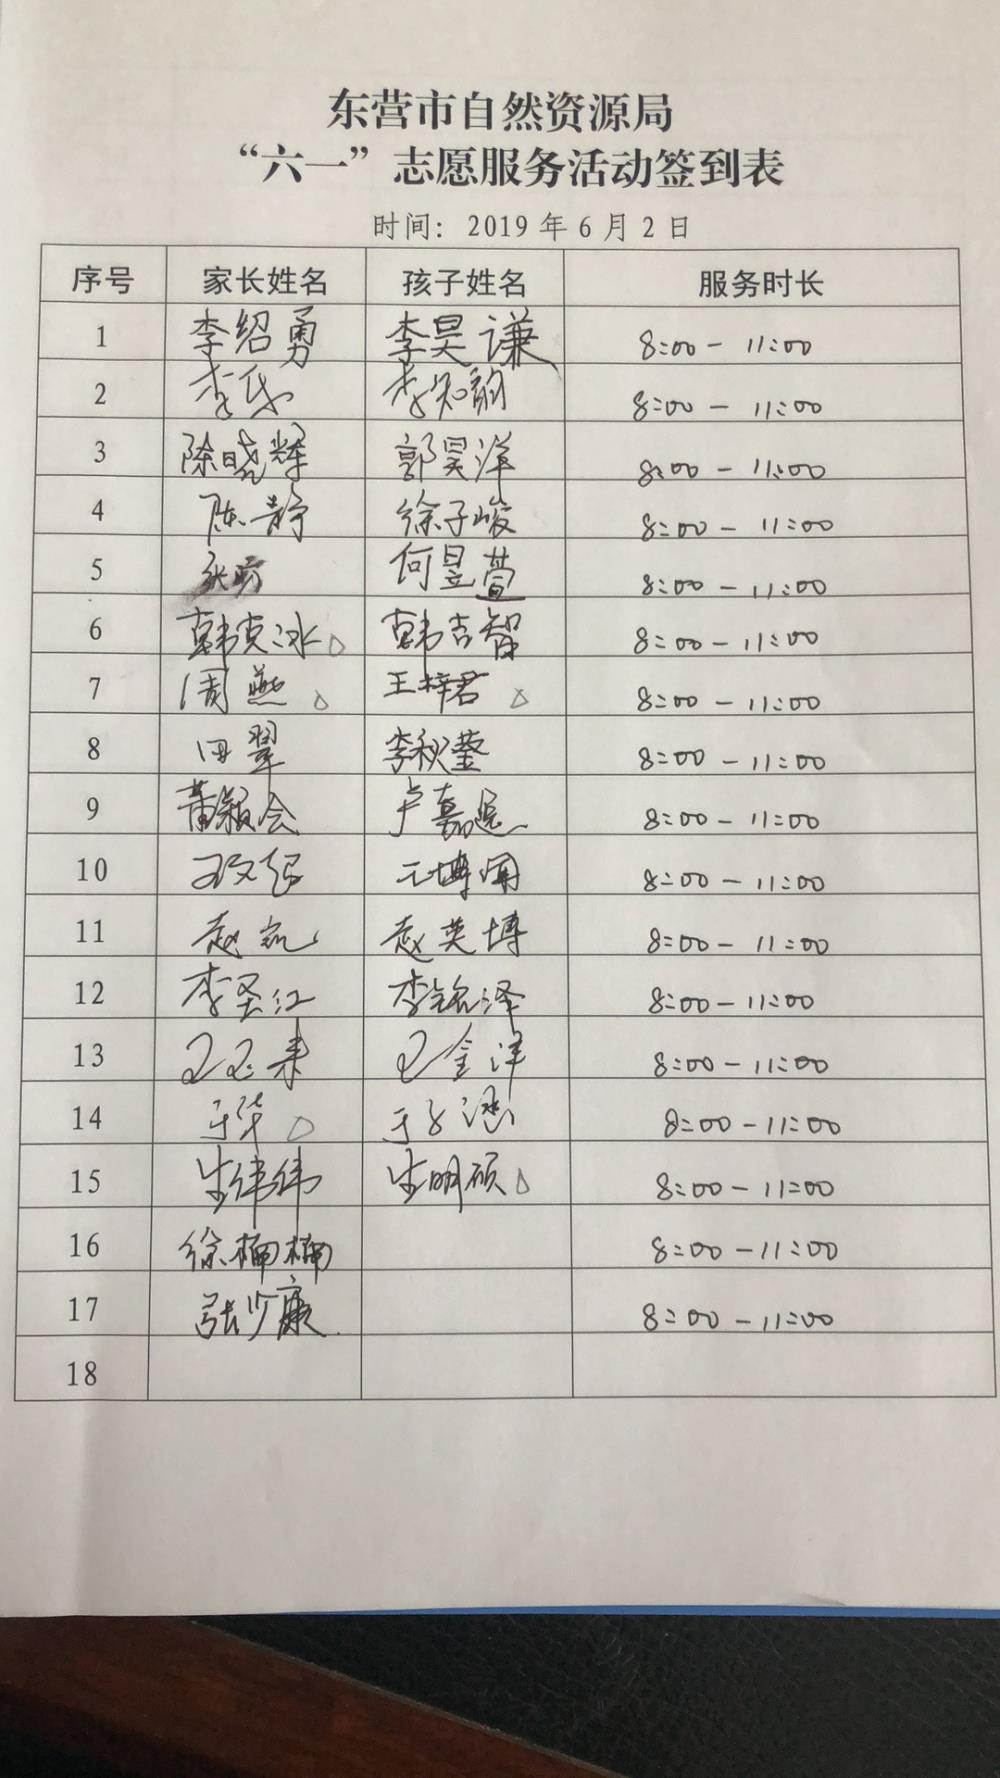 东营市自然资源局
“六一”志愿服务活动签到表
时间：2019年6月2日
序号 家长姓名 孩子姓名 服务时长
1 李绍勇 李昊谦 8:00－11:00
2 李 李知韵 8:00－11:00
3 陈晓辉 郭昊洋 8:00－11:00
4 陈静 徐子峻 8:00－11:00
5 何昱萱 8:00－11:00
6 韩克冰 韩吉智 8:00－11:00
7 周燕 王梓君 8:00－11:00
8 田翠 李秋蓥 8:00－11:00
9 董颖会 卢嘉 8:00－11:00
10 王博闻 8:00－11:00
11 赵凯 赵英博 8:00－11:00
12 李圣江 李铭泽 8:00－11:00
13 王玉来 王金洋 8:00－11:00
14 于华 于子涵 8:00－11:00
15 生伟伟 生明硕 8:00－11:00
16 徐楠楠 8:00－11:00
17 张少康 8:00－11:00
18